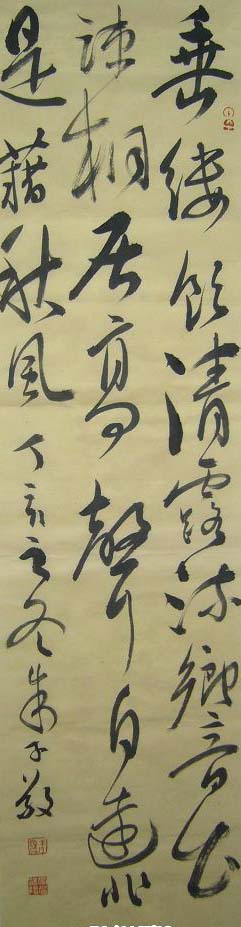 垂緌飲清露流響出
疎桐居高聲自遠非
是藉秋風 丁亥之冬